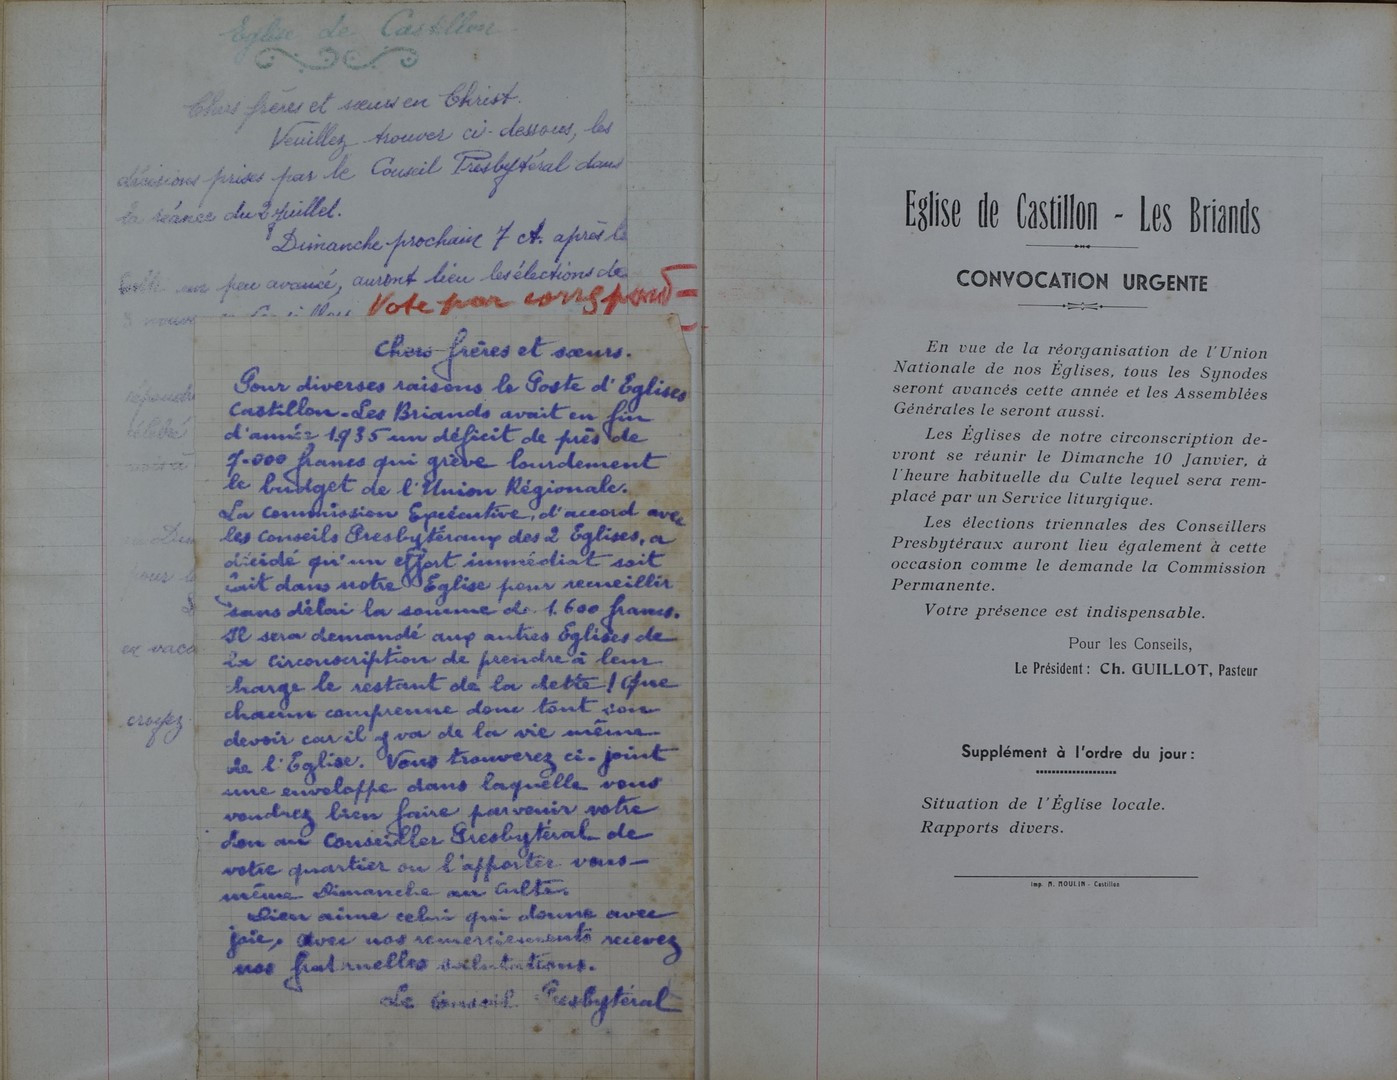 Eglise de Castillon
Chers frères et sœurs en Christ.
Veuillez trouver ci-dessous, les
décisions prises par le Conseil Presbytéral dans
la séance du 2 Juillet.
Dimanche prochain 7 ct. après le
un peu avancé, auront lieu les élections de
Vote par corresp
répondre
célébré
en Dim
pour l
en vaca
croyez
Chers frères et sœurs.
Pour diverses raisons le Poste d'Eglises
Castillon-Les Briands avait en fin
d'année 1935 un déficit de près de
7.000 francs qui grève lourdement
le budget de l'Union Régionale.
La Commission Exécutive, d'accord avec
les Conseils Presbytéraux des 2 Eglises, a
décidé qu'un effort immédiat soit
fait dans notre Eglise pour recueillir
sans délai la somme de 1.600 francs.
Il sera demandé aux autres Eglises de
la circonscription de prendre à leur
charge le restant de la dette! Que
chacun comprenne donc tout son
devoir car il y va de la vie même
de l'Eglise. Vous trouverez ci-joint
une enveloppe dans laquelle vous
voudrez bien faire parvenir votre
don au Conseiller Presbytéral de
votre quartier ou l'apporter vous-
même Dimanche au Culte.
Dieu aime celui qui donne avec
joie, avec nos remerciements recevez
nos fraternelles salutations.
Le Conseil Presbytéral
Eglise de Castillon - Les Briands
CONVOCATION URGENTE
En vue de la réorganisation de l'Union
Nationale de nos Églises, tous les Synodes
seront avancés cette année et les Assemblées
Générales le seront aussi.
Les Églises de notre circonscription de-
vront se réunir le Dimanche 10 Janvier, à
l'heure habituelle du Culte lequel sera rem-
placé par un Service liturgique.
Les élections triennales des Conseillers
Presbytéraux auront lieu également à cette
occasion comme le demande la Commission
Permanente.
Votre présence est indispensable.
Pour les Conseils,
Le Président : Ch. GUILLOT, Pasteur
Supplément à l'ordre du jour :
Situation de l'Église locale.
Rapports divers.
Imp. A. MOULIN - Castillon